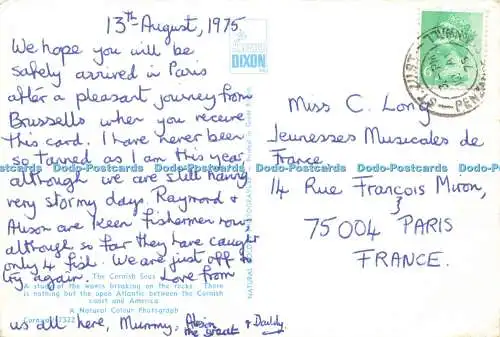 13th August, 1975
We hope you will be
safely arrived in Paris
after a pleasant journey from
Brussells when you receive
this card. I have never been
so tanned as I am this year
although we are still having
very stormy days. Raymond &
Alison are keen fishermen now
although so far they have caught
only 4 fish. We are just off to
try again. Love from
us all here, Mummy, Alison the great & Daddy.
The Cornish Seas
A study of the waves breaking on the rocks. There
is nothing but the open Atlantic between the Cornish
coast and America.
A Natural Colour Photograph
Cornwall 7322
DIXON
Miss C. Long
Jeunesses Musicales de
France
14 Rue François Miron,
75004 PARIS
FRANCE.
ST. JUST
PENZANCE
CORNWALL
Dodo-Postcards Dodo-Postcards Dodo-Postcards Dodo-Postcards Dodo-Postcards